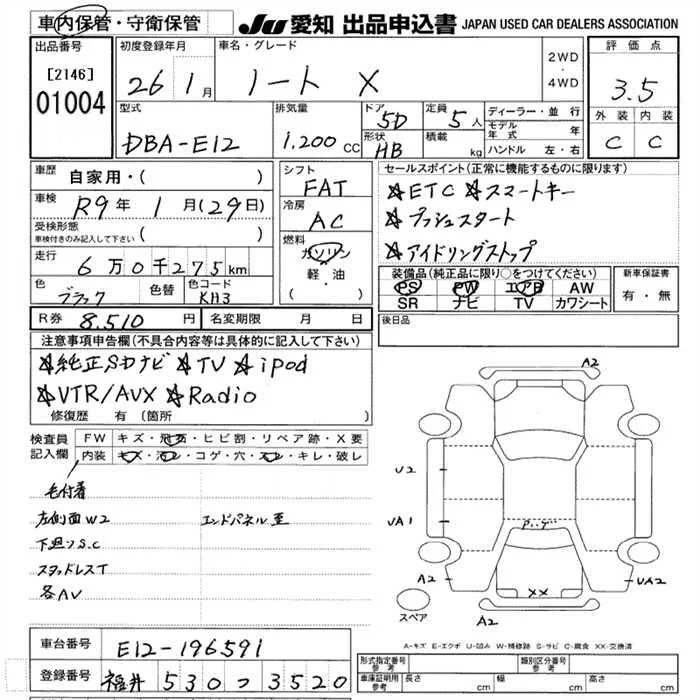 車内保管・守衛保管
JU 愛知 出品申込書 JAPAN USED CAR DEALERS ASSOCIATION
出品番号
[2146]
01004
初度登録年月
26 1月
車名・グレード
ノート X
2WD
・
4WD
評価点
3.5
外装 内装
C C
型式
DBA-E12
排気量
1.200 CC
ドア
5D
形状
HB
定員
5人
積載
kg
ディーラー・並行
モデル年式 年
ハンドル 左・右
車歴
自家用・( )
車検
R9年 1月(29日)
受検形態
車検付きのみ記入して下さい ( )
走行
6万0千275km
色
ブラック
色替
色コード
KH3
シフト
FAT
冷房
AC
燃料
ガソリン
軽・油
( )
セールスポイント(正常に機能するものに限ります)
☆ETC ☆スマートキー
☆プッシュスタート
☆アイドリングストップ
装備品(純正品に限り○をつけてください)
PS PW エアB AW
SR ナビ TV カワシート
新車保証書
有・無
R券 8.510円
名変期限 月 日
後日品
注意事項申告欄(不具合内容等は具体的に記入して下さい)
☆純正SDナビ ☆TV ☆iPod
☆VTR/AUX ☆Radio
修復歴 有(箇所 )
検査員
記入欄
FW キズ・飛石・ヒビ割・リペア跡・X要
内装 キズ・汚レ・コゲ・穴・スレ・キレ・破レ
毛付着
左側面W2
エンドパネル歪
下廻リS.C
スタッドレスT
各AV
A2
U2
UA1
A2
XX
UA2
A2
スペア
A-キズ E-エクボ U-凹み W-補修跡 S-サビ C-腐食 XX-交換済
車台番号
E12-196591
登録番号
福井 530 つ 3520
形式指定番号
参考
類別区分番号
参考
車庫証明用
参考
長さ cm 幅 cm 高さ cm